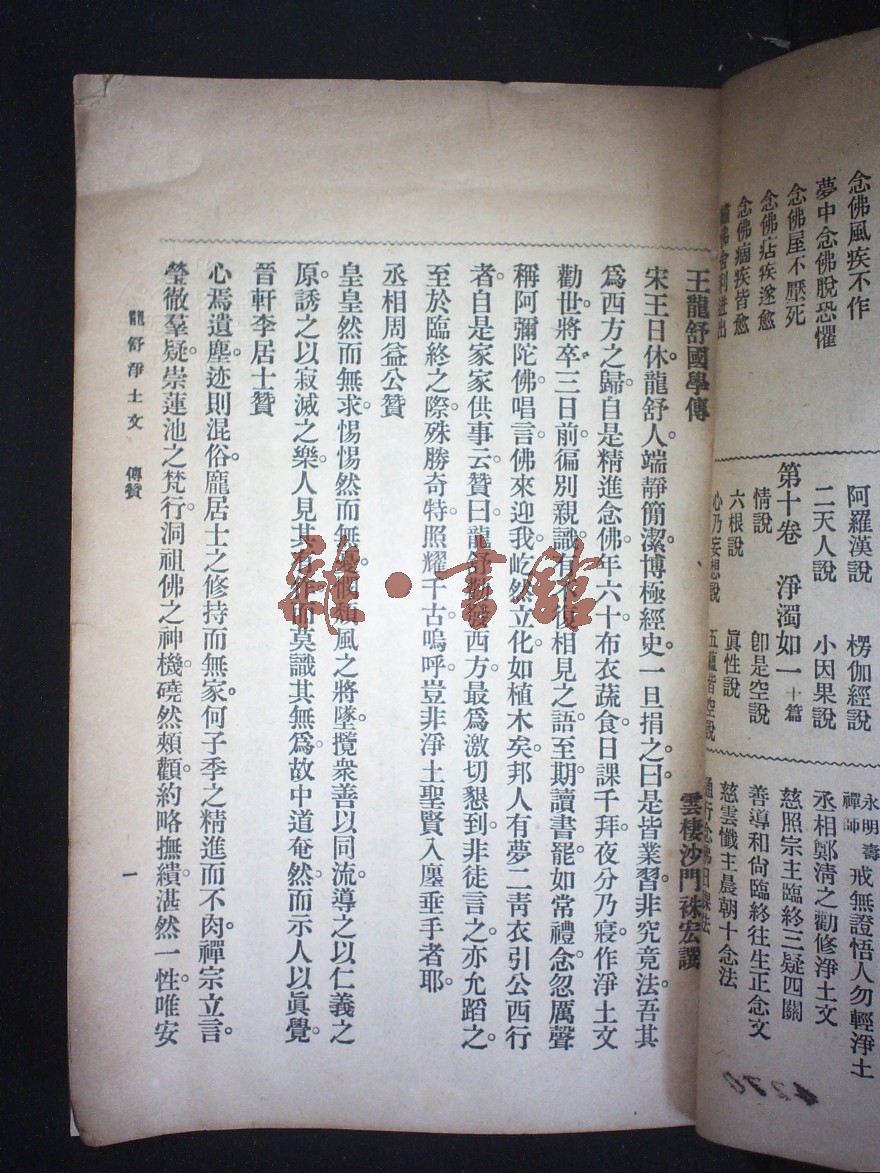 念佛風疾不作
夢中念佛脫恐懼
念佛屋不壓死
念佛痁疾遂愈
念佛痼疾皆愈
佛舍利迸出
阿羅漢說 楞伽經說
二天人說 小因果說
第十卷 淨濁如一 十篇
情說 卽是空說
六根說 眞性說
心乃妄想說 五蘊皆空說
永明壽禪師 戒無證悟人勿輕淨土
丞相鄭淸之勸修淨土文
慈照宗主臨終三疑四關
善導和尙臨終往生正念文
慈雲懺主晨朝十念法
通行念佛日課法
王龍舒國學傳 雲棲沙門袾宏譔
宋王日休。龍舒人。端靜簡潔。博極經史。一旦捐之曰。是皆業習。非究竟法。吾其
爲西方之歸。自是精進念佛。年六十。布衣蔬食。日課千拜。夜分乃寢。作淨土文
勸世。將卒三日前。徧別親識。有不復相見之語。至期。讀書罷。如常禮念。忽厲聲
稱阿彌陀佛。唱言佛來迎我。屹然立化。如植木矣。邦人有夢二靑衣引公西行
者。自是家家供事云。贊曰。龍舒勸發西方。最爲激切懇到。非徒言之。亦允蹈之。
至於臨終之際。殊勝奇特。照耀千古。嗚呼。豈非淨土聖賢入廛垂手者耶。
丞相周益公贊
皇皇然而無求。惕惕然而無憂。憫頹風之將墜。攬衆善以同流。導之以仁義之
原。誘之以寂滅之樂。人見其有作。而莫識其無爲。故中道奄然。而示人以眞覺。
晉軒李居士贊
心焉遺塵。迹則混俗。龐居士之修持而無家。何子季之精進而不肉。禪宗立言。
瑩徹羣疑。崇蓮池之梵行。洞祖佛之神機。磽然頰顴。約略撫績。湛然一性。唯安
龍舒淨土文 傳贊 一
雜·書館